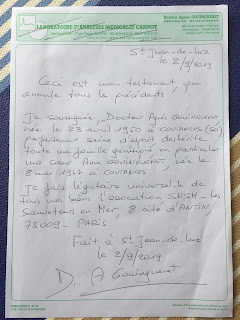 LABORATOIRE D'ANALYSES MEDICALES CARNOT
St Jean-de-luz
le 2/9/2019
Ceci est mon testament qui
annule tous les précédents,
Je soussignée, Doctor Agnès
née le 23 avril 1950 à COUTANCES
parfaitement saine d'esprit déshérite
toute ma famille génétique en particulier
ma soeur Anne, née le
8 mai 1947 à COUTANCES
Je fais légataire universelle de
tous mes biens l'association SNSM. les
Sauveteurs en Mer, 8 cité d'ANTIN
75009 - PARIS
Fait à St Jean-de-luz
le 2/9/2019
Dr. A